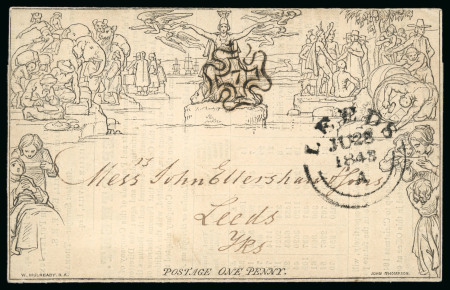 LEEDS
JU 28
1843
A
Messrs John Ellershaw & Sons
Leeds
Yks
W. MULREADY. R.A.
POSTAGE ONE PENNY.
JOHN THOMPSON